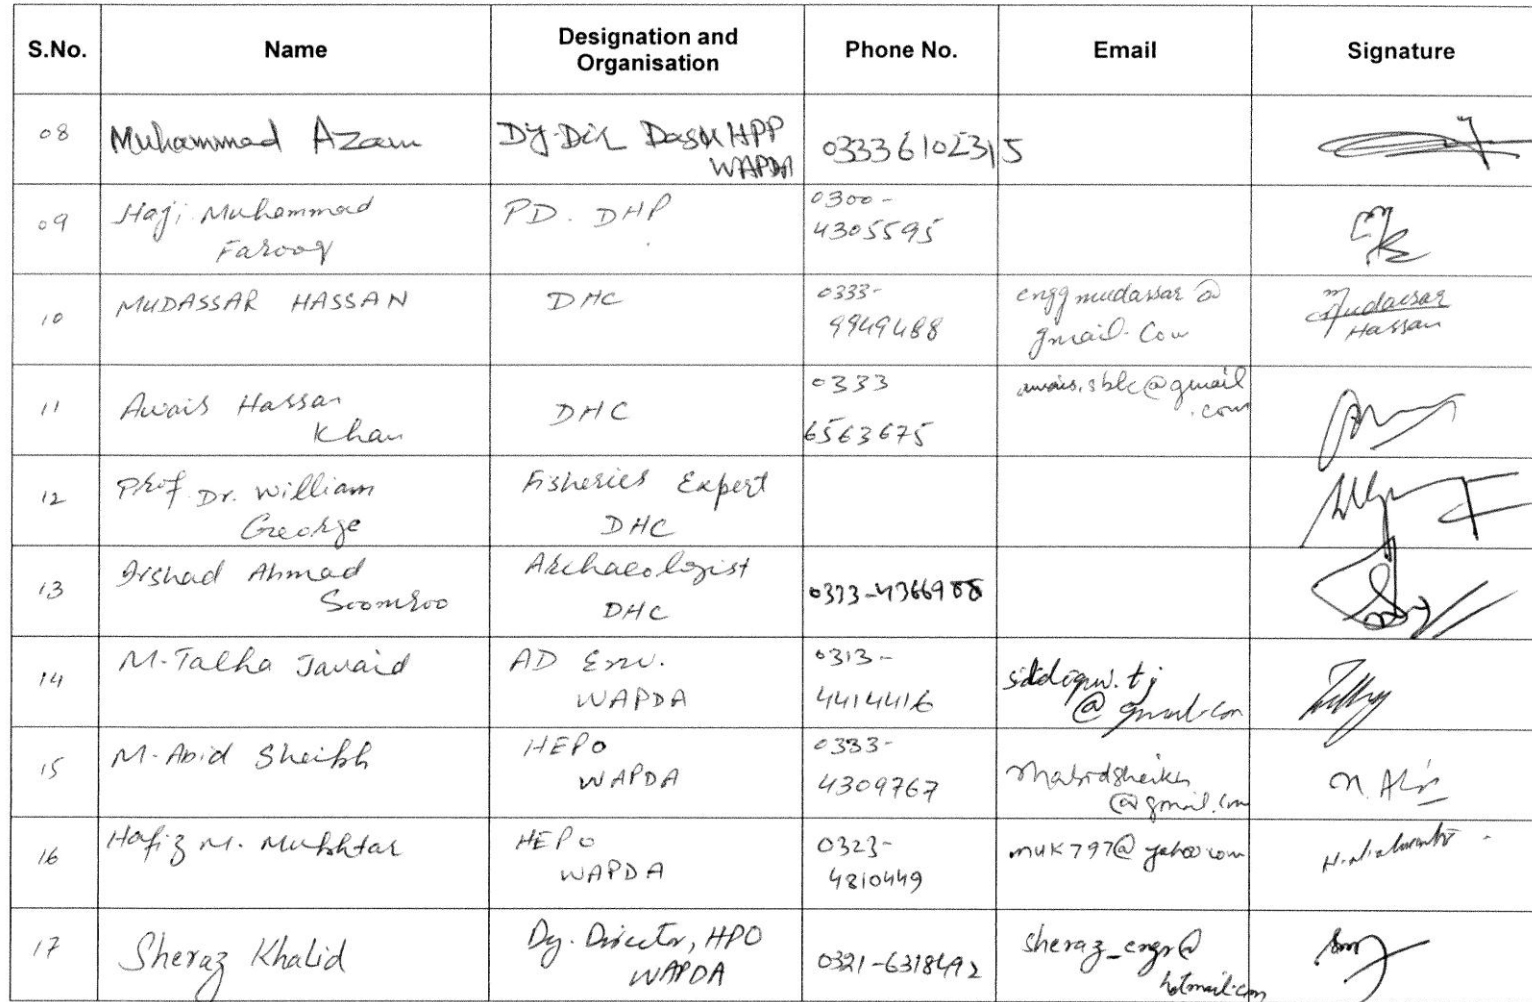 S.No. Name Designation and Organisation Phone No. Email Signature
08 Muhammad Azam Dy-Dir Dasu HPP WAPDA 03336102315
09 Haji Muhammad Farooq PD. DHP 0300-4305595
10 MUDASSAR HASSAN DHC 0333-9949488 enggmudassar@gmail.com Mudassar Hassan
11 Awais Hassan Khan DHC 0333 6563675 awais.sblc@gmail.com
12 Prof. Dr. William George Fisheries Expert DHC
13 Irshad Ahmad Soomroo Archaeologist DHC
14 M-Talha Javaid AD Env. WAPDA 0313-4414416 @gmail.com
15 M-Abid Sheikh HEPO WAPDA 0333-4309767 mabidsheikh@gmail.com
16 Hafiz M. Mukhtar HEPO WAPDA 0323-4810449 muk797@yahoo.com
17 Sheraz Khalid Dy. Director, HPO WAPDA 0321-6318492 sheraz_engr@hotmail.com